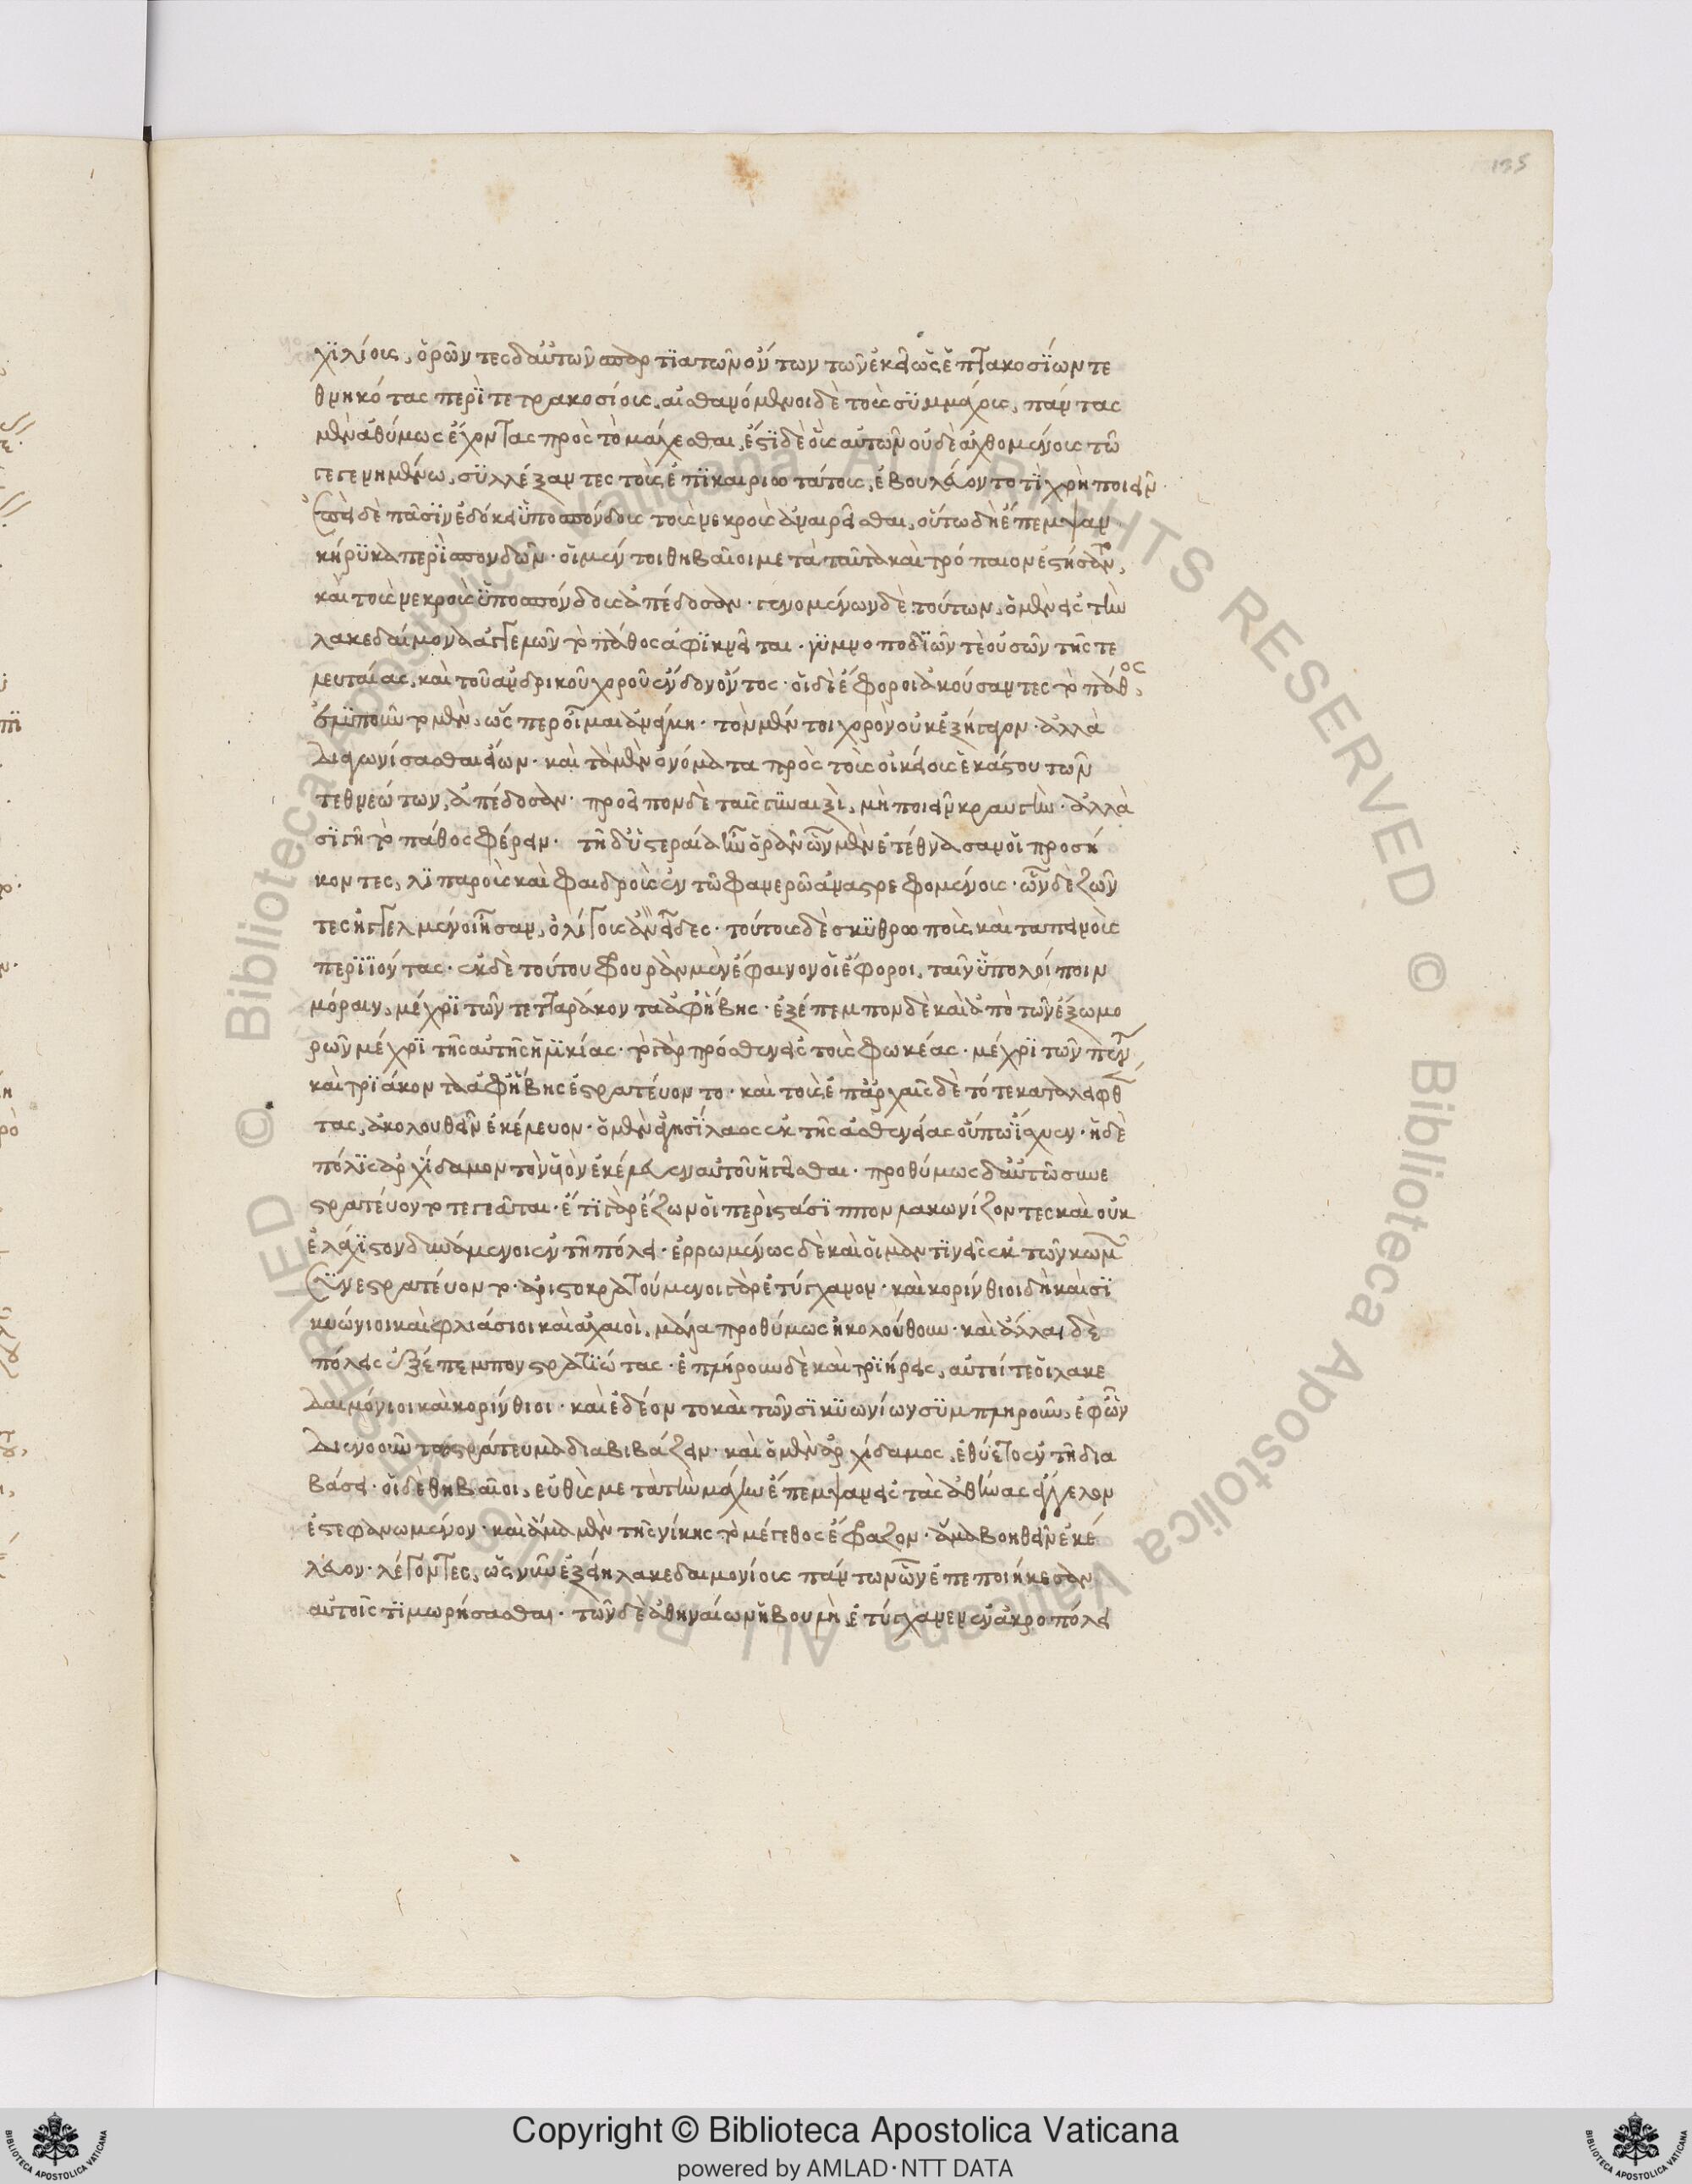 135
χϊλίοις, ὁρῶντες δ' αὐτῶν σπαρτϊατῶν ὄντων τῶν ἐκεῖ ὡς ἑπτακοσΐων τε
θνηκότας περὶ τετρακοσίοις, αἰσθανόμενοι δὲ τοὺς συμμάχους, πάντας
μὲν ἀθύμως ἔχοντας πρὸς τὸ μάχεσθαι, ἔστϊ δὲ οὓς αὐτῶν οὐδὲ ἀχθομένους τῶ
γεγενημένω, συλλέξαντες τοὺς ἐπϊκαιριωτάτους, ἐβουλεύοντο τί χρὴ ποιεῖν.
ἐπεὶ δὲ πᾶσϊν ἐδόκει ὑποσπόνδους τοὺς νεκροὺς ἀναιρεῖσθαι, οὕτω δὴ ἔπεμψαν
κήρϋκα περὶ σπονδῶν. οἱ μέν τοι θηβαῖοι μετὰ ταῦτα καὶ τρόπαιον ἐστήσαντο,
καὶ τοὺς νεκροὺς ὑποσπόνδους ἀπέδοσαν. γενομένων δὲ τούτων, ὁ μὲν εἰς τὴν
λακεδαίμονα ἀγγελῶν τὸ πάθος ἀφϊκνεῖται. γϋμνοποδϊῶν τε οὐσῶν τῆς τε
λευταίας, καὶ τοῦ ἀνδρικοῦ χοροῦ ἔνδον ὄντος. οἱ δὲ ἔφοροι ἀκούσαντες τὸ πάθος,
ἐλϋποῦντο μὲν, ὥσπερ οἶμαι ἀνάγκη. τὸν μέν τοι χορὸν οὐκ ἐξήγαγον. ἀλλὰ
διαγωνίσασθαι εἴων. καὶ τὰ μὲν ὀνόματα πρὸς τοὺς οἰκείους ἑκάστου τῶν
τεθνεώτων, ἀπέδοσαν. προεῖπον δὲ ταῖς γϋναιξὶ, μὴ ποιεῖν κραυγὴν. ἀλλὰ
σϊγῆ τὸ πάθος φέρειν. τῆ δ' ὑστεραία ἦν ὁρᾶν ὧν μὲν ἐτέθνασαν οἱ προσή
κοντες, λϊπαροὺς καὶ φαιδροὺς ἐν τῶ φανερῶ ἀναστρεφομένους. ὧν δὲ ζῶν
τες ἠγγελμένοι ἦσαν, ὀλίγους ἂν εἶδες. τούτους δὲ σκϋθρωποὺς καὶ ταπεινοὺς
περϊϊόντας. ἐκ δὲ τούτου φρουρὰν μὲν ἔφαινον οἱ ἔφοροι, ταῖν ὑπολοίποιν
μόραιν, μέχρϊ τῶν τετταράκοντα ἀφ' ἥβης. ἐξέπεμπον δὲ καὶ ἀπὸ τῶν ἔξω μο
ρῶν μέχρϊ τῆς αὐτῆς ἡλϊκίας. τὸ γὰρ πρόσθεν εἰς τοὺς φωκέας. μέχρϊ τῶν πέντε
καὶ τρϊάκοντα ἀφ' ἥβης ἐστρατεύοντο. καὶ τοὺς ἐπ' ἀρχαῖς δὲ τότε καταλειφθέν
τας, ἀκολουθεῖν ἐκέλευον. ὁ μὲν ἀγησΐλαος ἐκ τῆς ἀσθενείας οὔπω ἴσχυεν. ἡ δὲ
πόλϊς ἀρχΐδαμον τὸν υἱὸν ἐκέλευεν αὐτοῦ ἡγεῖσθαι. προθύμως δ' αὐτῶ συνε
στρατεύοντο τεγεᾶται. ἔτϊ γὰρ ἔζων οἱ περὶ στάσϊππον λακωνίζοντες καὶ οὐκ
ἐλάχϊστον δυνάμενοι ἐν τῆ πόλει. ἐρρωμένως δὲ καὶ οἱ μαντϊνεῖς ἐκ τῶν κωμῶν
συνεστρατεύοντο. ἀριστοκρατούμενοι γὰρ ἐτύγχανον. καὶ κορίνθιοι δὴ καὶ σϊ
κυώνιοι καὶ φλιάσιοι καὶ ἀχαιοὶ, μάλα προθύμως ἠκολούθουν. καὶ ἄλλαι δὲ
πόλεις ἐξέπεμπον στρατϊώτας. ἐπλήρουν δὲ καὶ τρϊήρεις, αὐτοί τε οἱ λακε
δαιμόνιοι καὶ κορίνθιοι. καὶ ἐδέοντο καὶ τῶν σϊκϋωνίων σϋμπληροῦν, ἐφ' ὧν
διενοοῦντο στράτευμα διαβιβάζειν. καὶ ὁ μὲν ἀρχίδαμος, ἐθύετο ἐν τῆ δια
βάσει. οἱ δὲ θηβαῖοι, εὐθὺς μετὰ τὴν μάχην ἔπεμψαν εἰς τὰς ἀθήνας ἄγγελον
ἐστεφανωμένον. καὶ ἅμα μὲν τῆς νίκης τὸ μέγεθος ἔφραζον. ἅμα βοηθεῖν ἐκέ
λευον. λέγοντες, ὡς νῦν ἐξείη λακεδαιμονίοις πάντων ὧν ἐπεποιήκεσαν
αὐτοῖς τϊμωρήσασθαι. τῶν δὲ ἀθηναίων ἡ βουλὴ, ἐτύγχανεν ἐν ἀκροπόλει
Copyright © Biblioteca Apostolica Vaticana
powered by AMLAD·NTT DATA